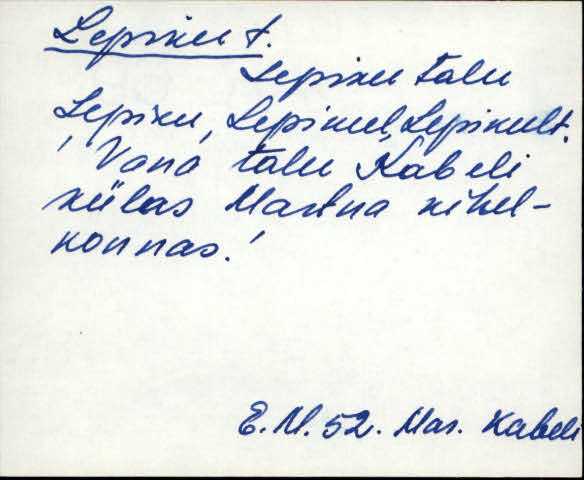 Lepiku t.
Lepiku talu
Lepiku, Lepikul, Lepikult.
'Vana talu Kabeli
külas Martna kihel-
konnas.'
E.M. 52. Mar. Kabeli